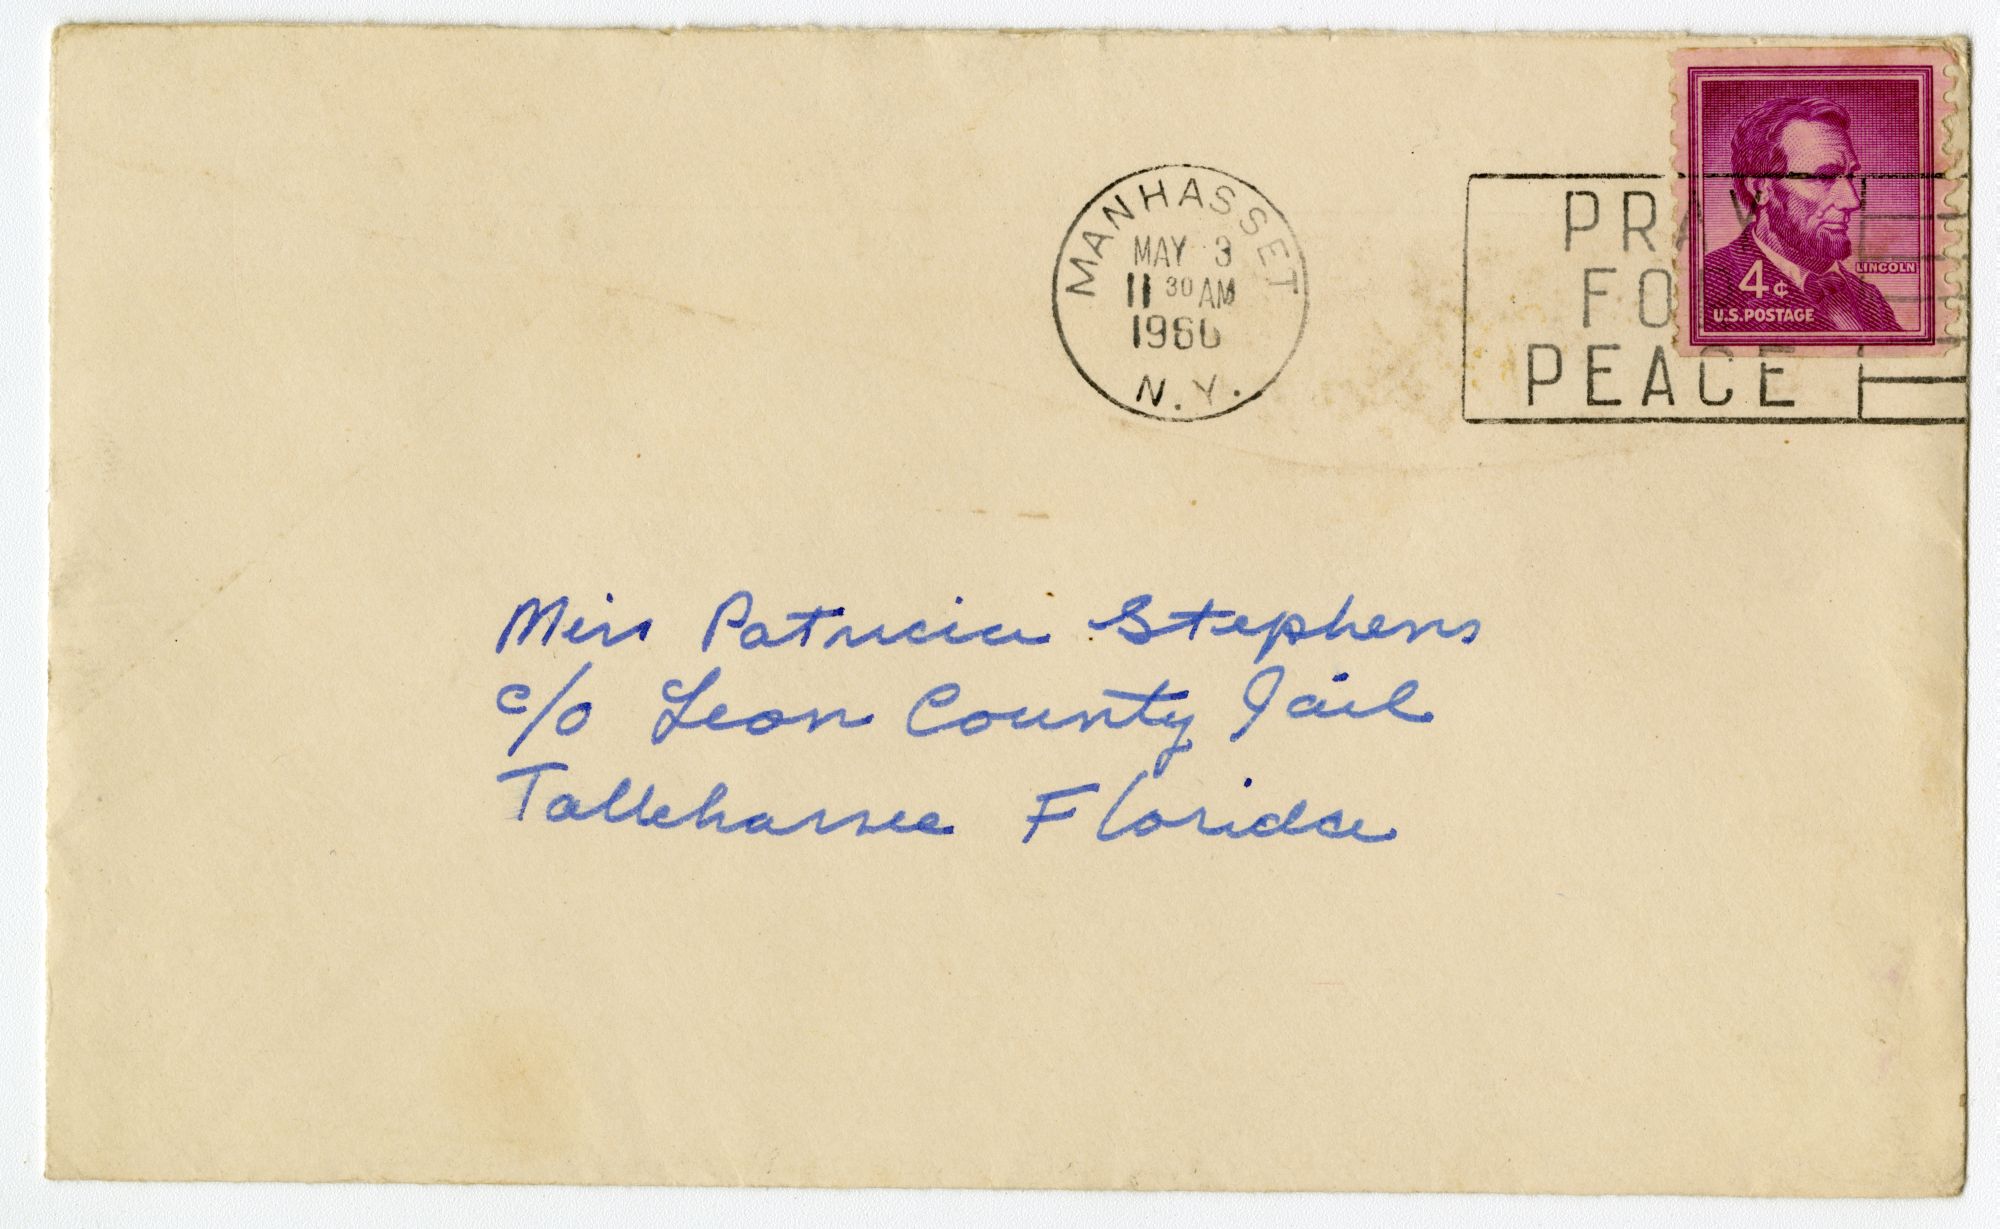 MANHASSET
MAY 3
11 30 AM
1960
N.Y.
PRAY
FOR
PEACE
LINCOLN
4¢
U.S. POSTAGE
Miss Patricia Stephens
c/o Leon County Jail
Tallehassee Florida